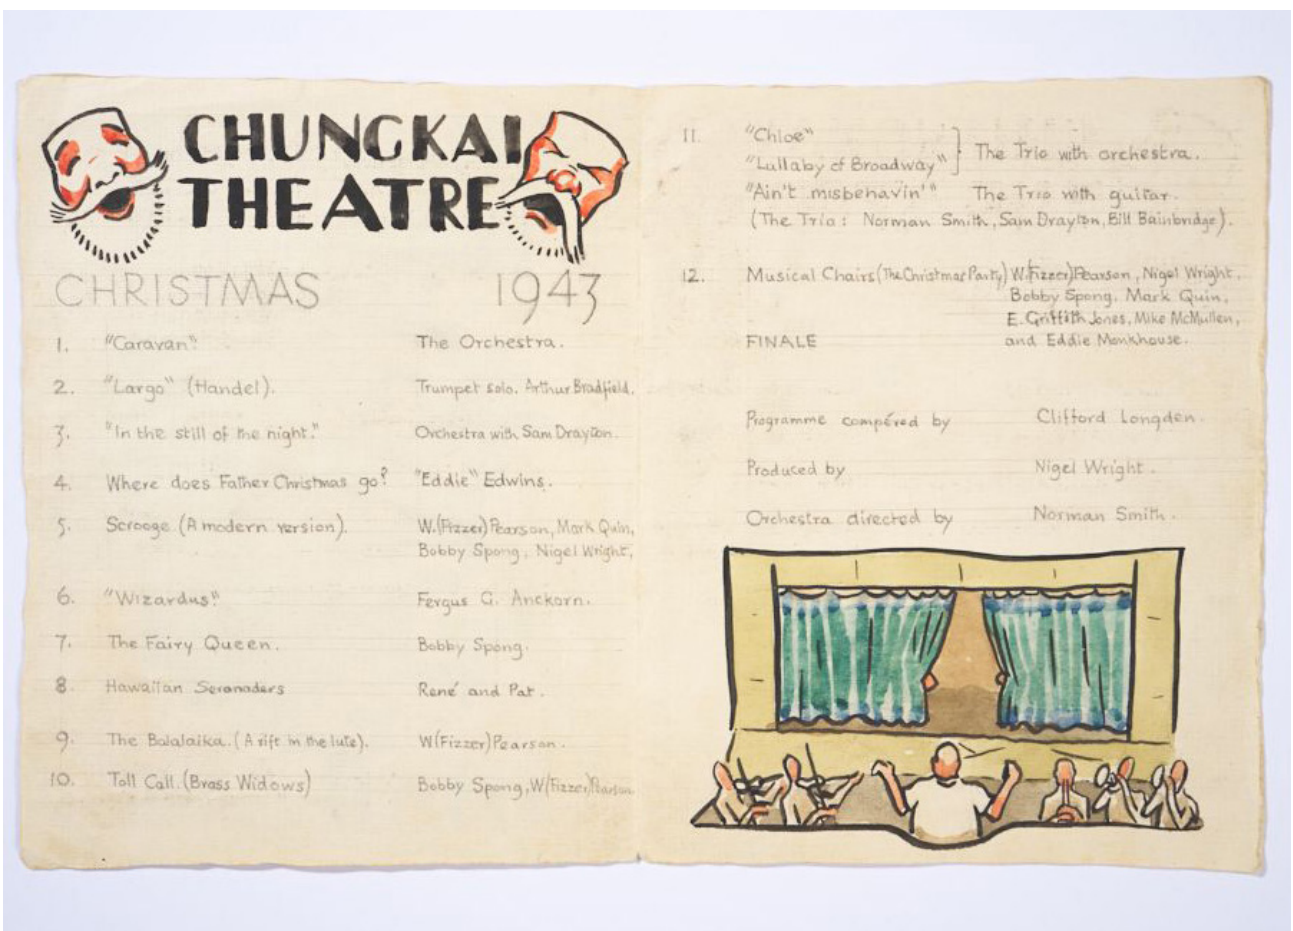 CHUNGKAI
THEATRE
CHRISTMAS 1943
1. "Caravan". The Orchestra.
2. "Largo" (Handel). Trumpet solo. Arthur Bradfield.
3. "In the still of the night." Orchestra with Sam Drayton.
4. Where does Father Christmas go? "Eddie" Edwins.
5. Scrooge. (A modern version). W. (Fizzer) Pearson, Mark Quin,
Bobby Spong, Nigel Wright,
6. "Wizardus". Fergus G. Anckorn.
7. The Fairy Queen. Bobby Spong.
8. Hawaiian Seranaders René and Pat.
9. The Balalaika. (A rift in the lute). W(Fizzer) Pearson.
10. Toll Call. (Brass Widows) Bobby Spong, W(Fizzer) Pearson
11. "Chloe"
"Lullaby of Broadway" } The Trio with orchestra.
"Ain't misbehavin'" The Trio with guitar.
(The Trio: Norman Smith, Sam Drayton, Bill Bainbridge).
12. Musical Chairs (The Christmas Party) W.(Fizzer) Pearson, Nigel Wright,
Bobby Spong, Mark Quin,
E. Griffith Jones, Mike McMullen,
FINALE and Eddie Monkhouse.
Programme compéred by Clifford Longden.
Produced by Nigel Wright.
Orchestra directed by Norman Smith.